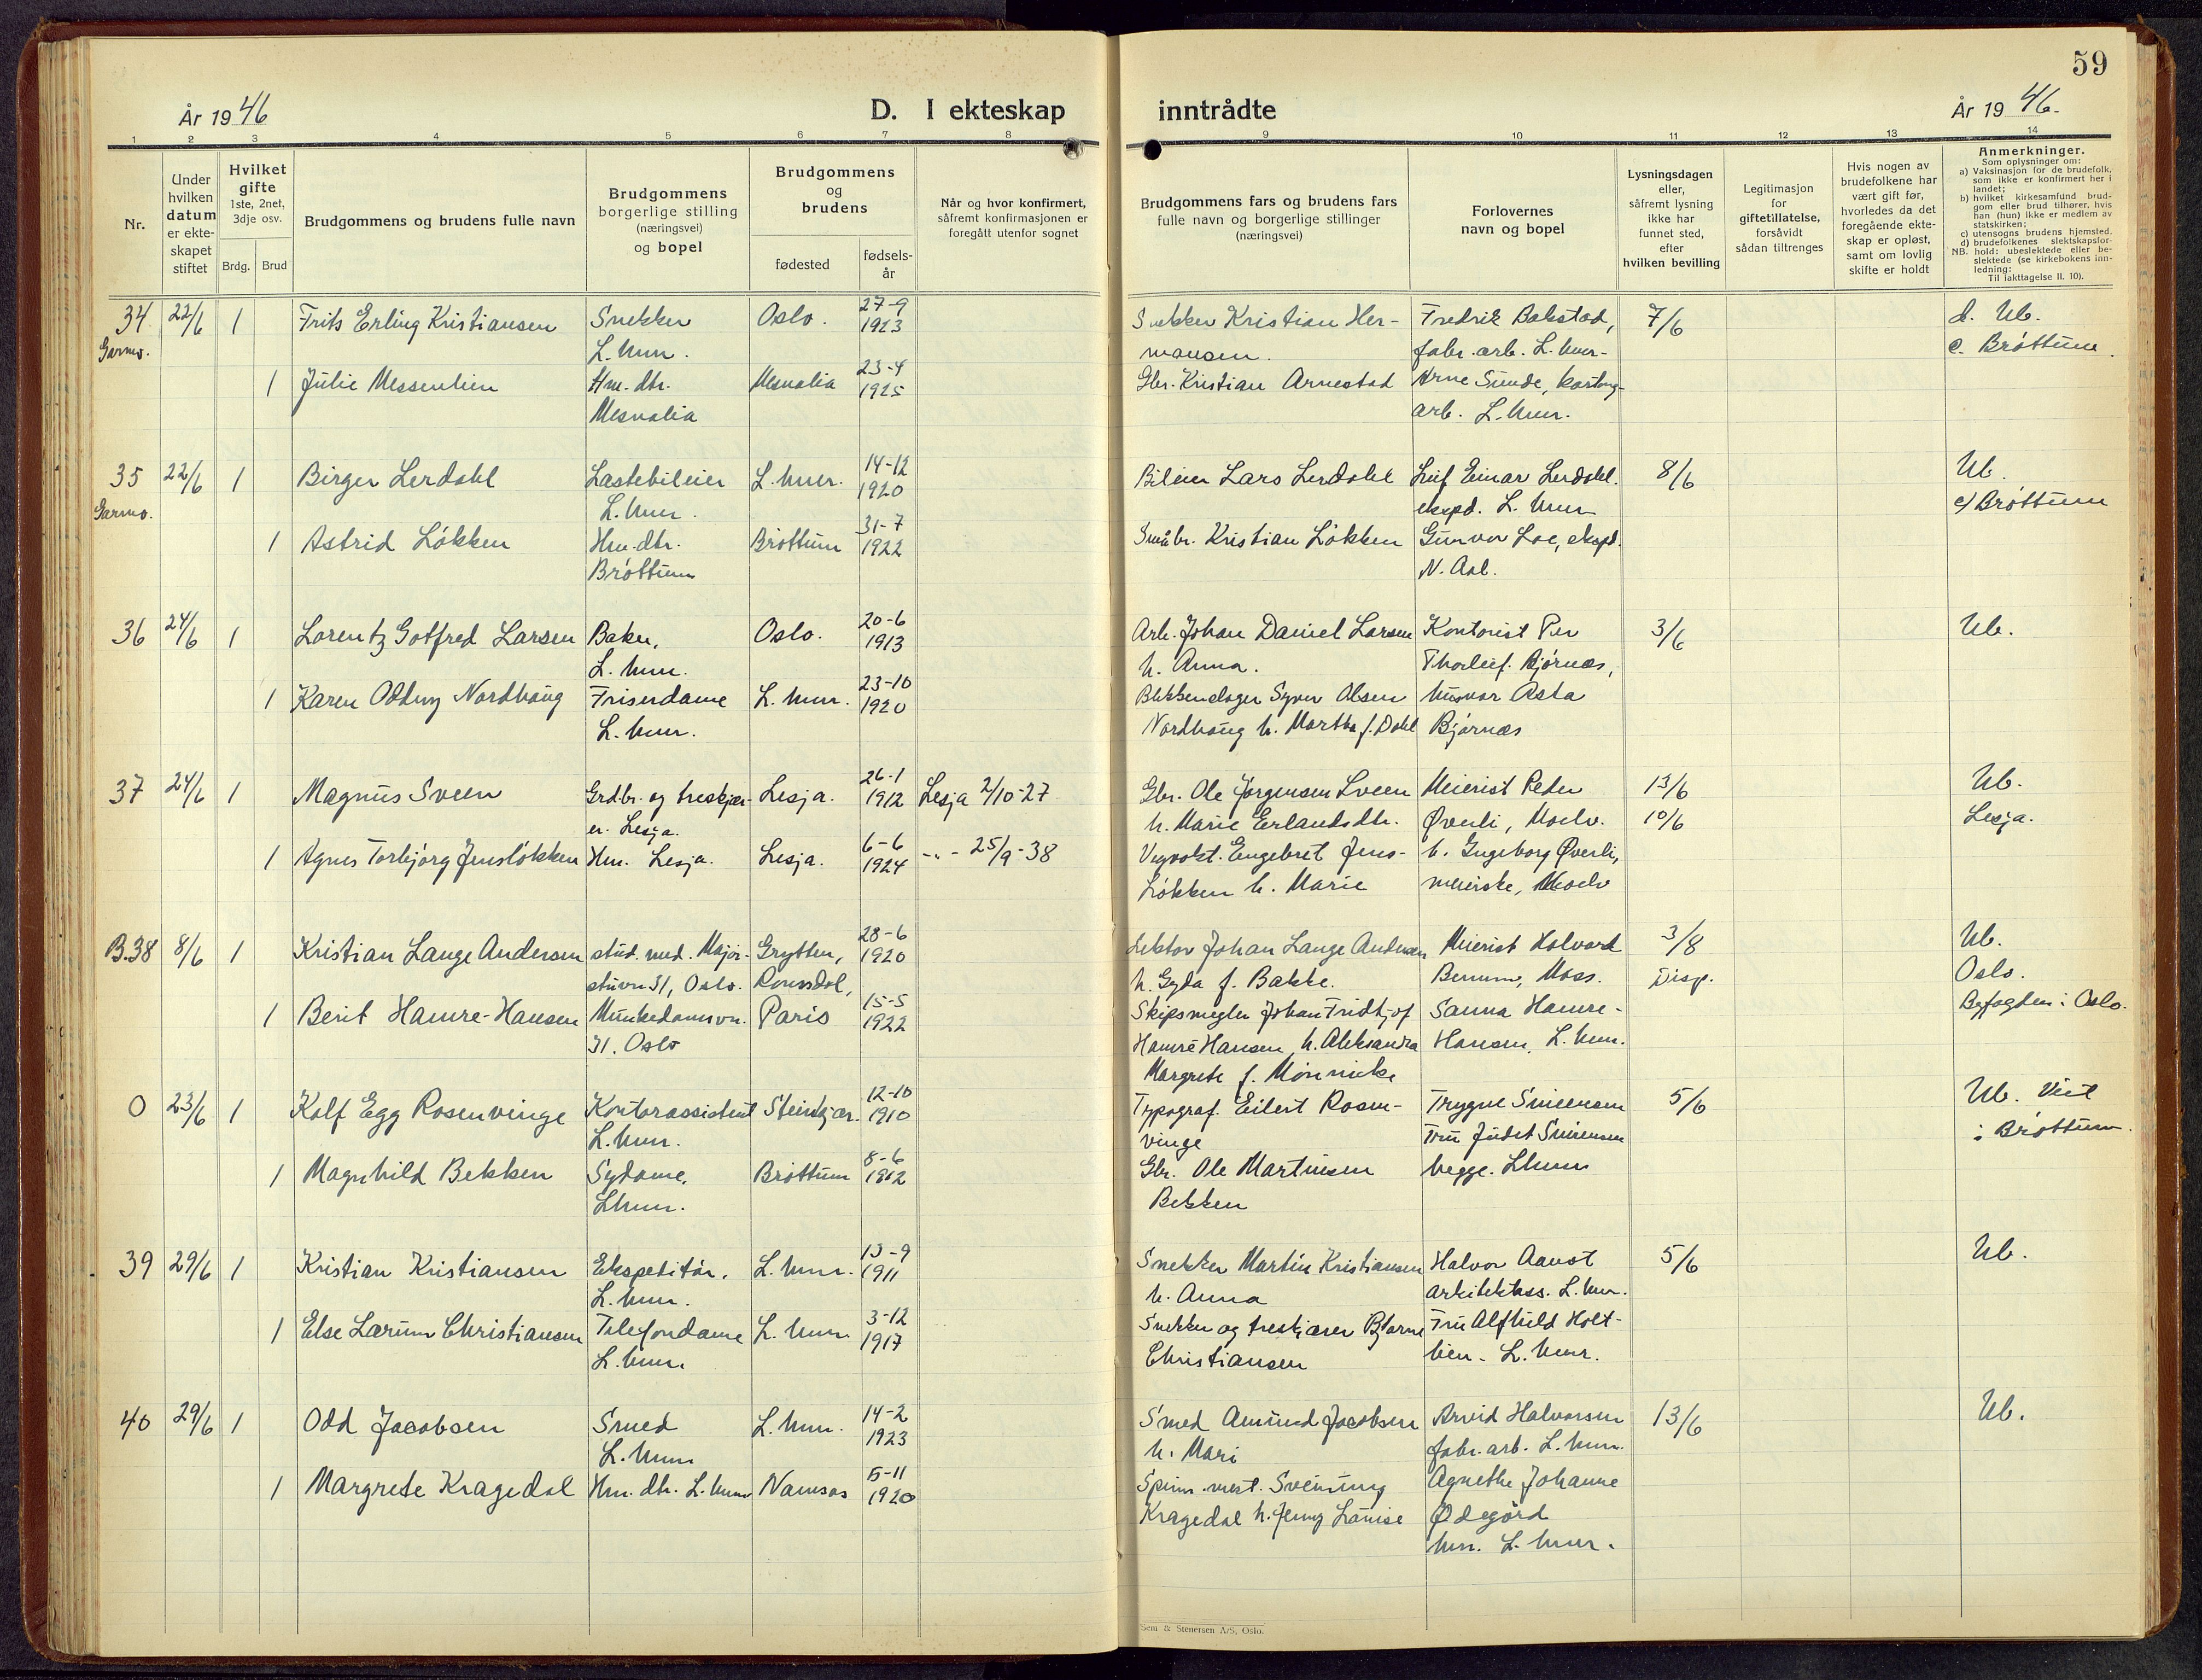 59
År 1946
D. I ekteskap
inntrådte
År 1946.
1 2 3 4 5 6 7 8 9 10 11 12 13 14
Nr.
Under hvilken datum er ekteskapet stiftet
Hvilket gifte 1ste, 2net, 3dje osv.
Brdg. Brud
Brudgommens og brudens fulle navn
Brudgommens borgerlige stilling (næringsvei) og bopel
Brudgommens og brudens
fødested
fødsels-år
Når og hvor konfirmert, såfremt konfirmasjonen er foregått utenfor sognet
Brudgommens fars og brudens fars fulle navn og borgerlige stillinger (næringsvei)
Forlovernes navn og bopel
Lysningsdagen eller, såfremt lysning ikke har funnet sted, efter hvilken bevilling
Legitimasjon for giftetillatelse, forsåvidt sådan tiltrenges
Hvis nogen av brudefolkene har vært gift før, hvorledes da det foregående ekteskap er opløst, samt om lovlig skifte er holdt
Anmerkninger.
Som oplysninger om:
a) Vaksinasjon for de brudefolk, som ikke er konfirmert her i landet;
b) hvilket kirkesamfund brudgom eller brud tilhører, hvis han (hun) ikke er medlem av statskirken;
c) utensogns brudens hjemsted.
d) brudefolkenes slektskapsforhold: ubeslektede eller beslektede (se kirkebokens innledning:
NB. Til iakttagelse II. 10).
34 22/6 1 Frits Erling Kristiansen Snekker Oslo. 27-9 1923 Snekker Kristian Her- Fredrik Bakstad, 7/6 d. Ub.
Garmo. L.hmr. mansen. fabr.arb. L.hmr- c. Brøttum.
1 Julie Messenlien Hm.dtr. Mesnalia 23-4 1925 Gbr. Kristian Arnestad Arne Sunde, kartong-
Mesnalia arb. L.hmr.
35 22/6 1 Birger Lerdahl Lastebileier L.hmr. 14-12 1920 Bileier Lars Lerdahl Leif Einar Lerdahl. 8/6 Ub.
Garmo. L.hmr. eksp. L.hmr c/ Brøttum
1 Astrid Løkken Hm.dtr. Brøttum 31-7 1922 Småbr. Kristian Løkken Gunvor Loe, eksp.
Brøttum N. Aal.
36 24/6 1 Lorentz Gotfred Larsen Baker, Oslo. 20-6 1913 Arb. Johan Daniel Larsen Kontorist Per 3/6 Ub.
L.hmr. h. Anna. Thorleif Bjørnæs,
1 Karen Oddny Nordhaug Friserdame L.hmr. 23-10 1920 Blikkenslager Syver Olsen husmor Asta
L.hmr. Nordhaug h. Martha f. Dahl Bjørnæs
37 24/6 1 Magnus Sveen Grdbr. og treskjær- Lesja. 26-1 1912 Lesja 2/10-27 Gbr. Ole Jørgensen Sveen Meierist Peder 13/6 Ub.
er. Lesja. h. Marie Erlandsdtr. Øverli, Moelv. 10/6 Lesja.
1 Agnes Torbjørg Jensløkken Hm. Lesja. Lesja. 6-6 1924 -"- 25/9-38 Vegvokt. Engebret Jens- h. Ingeborg Øverli,
løkken h. Marie meierske, Moelv
B.38 8/6 1 Kristian Lange Andersen stud. med. Major- Grytten, 28-6 1920 Lektor Johan Lange Andersen Meierist Halvard 3/8 Ub.
stuvn 31, Oslo. Romsdal, h. Gyda f. Bakke. Moss. Disp. Oslo.
1 Berit Hamre-Hansen Munkedamsvn. Paris 15-5 1922 Skipsmegler Johan Fridtjof Sanna Hamre- Byfogden i Oslo.
31. Oslo Hamre Hansen h. Aleksandra Hansen, L.hmr.
Margrete f. Mønnicke
0 23/6 1 Rolf Egg Rosenvinge Kontorassistent Steinkjær. 12-10 1910 Typograf. Eilert Rosen- Trygve Simensen 5/6 Ub. Viet
L.hmr. vinge Fru Judit Simensen i Brøttum.
1 Magnhild Bekken Sydame, Brøttum 8-6 1912 Gbr. Ole Martinsen begge. Lhmr
Lhmr. Bekken
39 29/6 1 Kristian Kristiansen Ekspeditør. L.hmr. 13-9 1911 Snekker Martin Kristiansen Halvor Aavst 5/6 Ub.
L.hmr. h. Anna arkitektass. L.hmr.
1 Else Larum Christiansen Telefondame L.hmr. 3-12 1917 Snekker og treskjærer Bjarne Fru Alfhild Holt-
L.hmr. Christiansen lien. L.hmr.
40 29/6 1 Odd Jacobsen Smed L.hmr. 14-2 1923 Smed Amund Jacobsen Arvid Halvorsen 13/6 Ub.
L.hmr h. Mari fabr.arb. L.hmr.
1 Margrete Kragedal Hm.dtr. L.hmr Namsos 5-11 1920 Spinn.mest. Sveinung Agnethe Johanne
Kragedal h. Jenny Louise Ødegård
hm. L.hmr.
Sem & Stenersen A/S, Oslo.